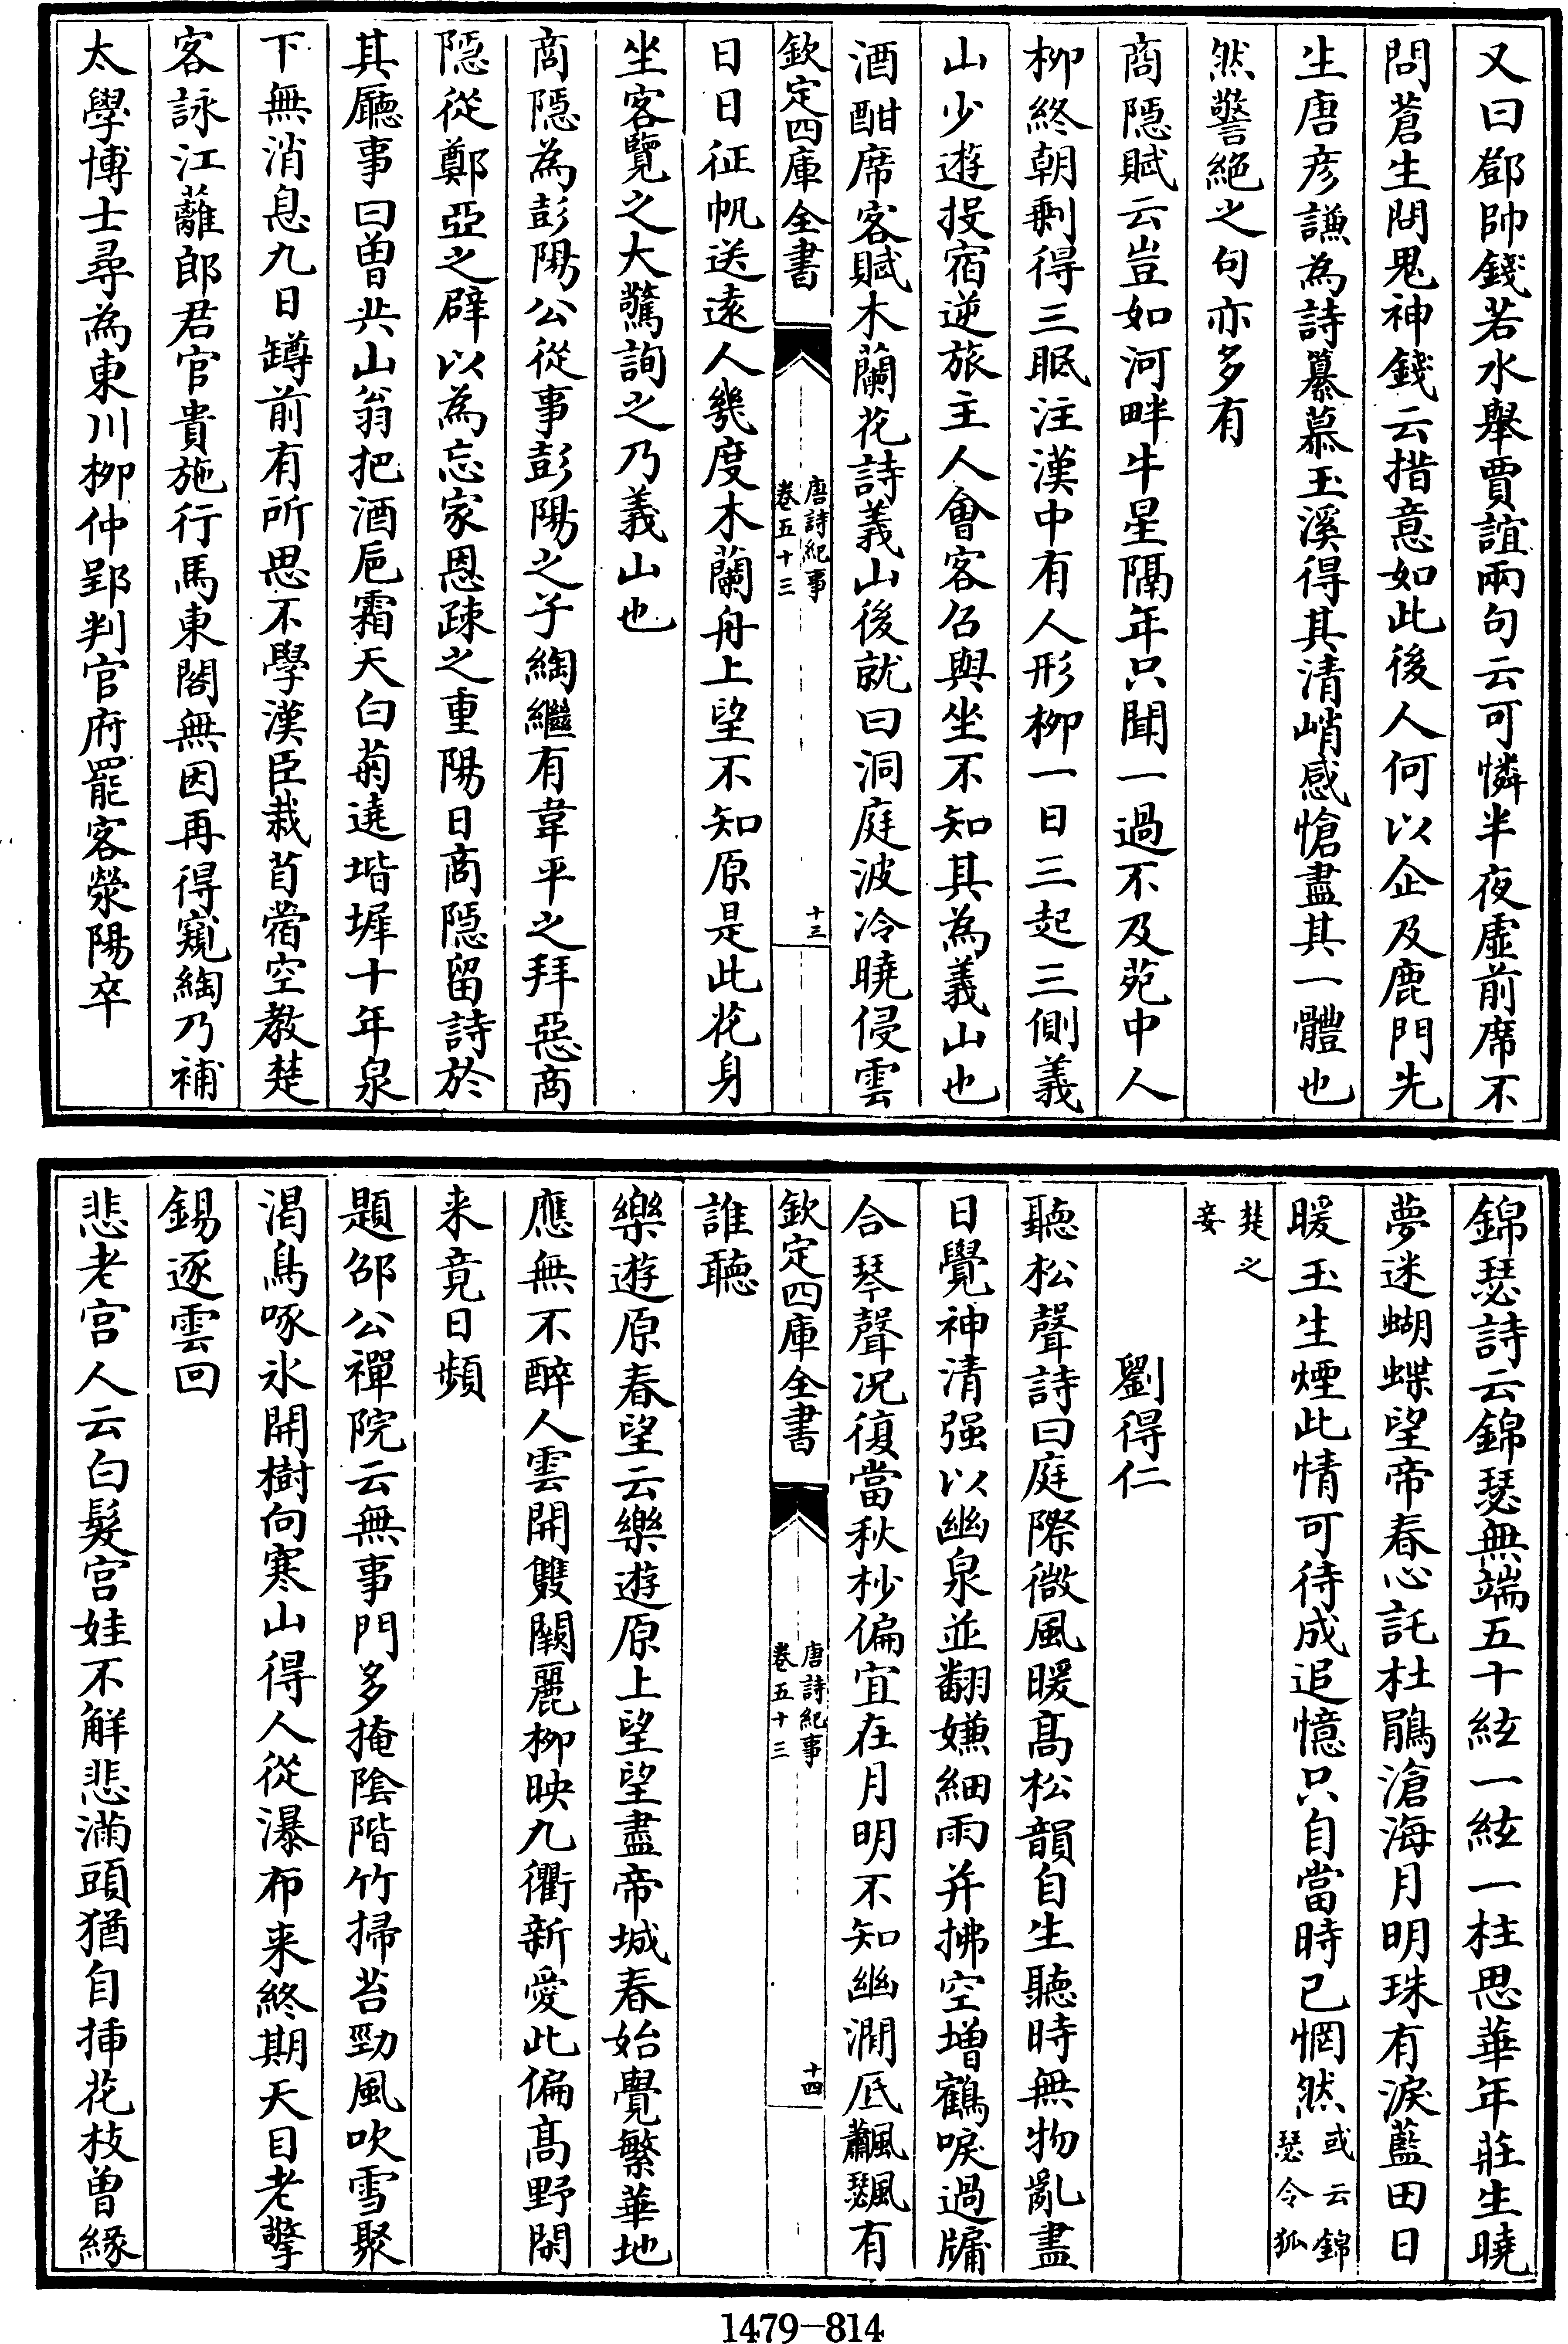 又曰鄧帥錢若水舉賈誼兩句云可憐半夜虛前席不
問蒼生問鬼神錢云措意如此後人何以企及鹿門先
生唐彥謙為詩纂慕玉溪得其清峭感愴盡其一體也
然警絶之句亦多有
商隱賦云豈如河畔牛星隔年只聞一過不及苑中人
柳終朝剩得三眠注漢中有人形柳一日三起三倒義
山少遊投宿逆旅主人會客召與坐不知其為義山也
酒酣席客賦木蘭花詩義山後就曰洞庭波冷曉侵雲
欽定四庫全書
唐詩紀事
卷五十三
十三
日日征帆送逺人幾度木蘭舟上望不知原是此花身
坐客覽之大驚詢之乃義山也
商隱為彭陽公從事彭陽之子綯繼有韋平之拜惡商
隱從鄭亞之辟以為忘家恩疎之重陽日商隱留詩於
其廳事曰曽共山翁把酒巵霜天白菊遶堦墀十年泉
下無消息九日罇前有所思不學漢臣栽苜蓿空教楚
客詠江蘺郎君官貴施行馬東閣無因再得窺綯乃補
太學博士尋為東川柳仲郢判官府罷客滎陽卒
錦瑟詩云錦瑟無端五十絃一絃一柱思華年莊生曉
夢迷蝴蝶望帝春心託杜鵑滄海月明珠有淚藍田日
暖玉生煙此情可待成追憶只自當時已惘然或云錦
瑟令狐
楚之
妾
劉得仁
聽松聲詩曰庭際微風暖髙松韻自生聽時無物亂盡
日覺神清强以幽泉並翻嫌細雨并拂空增鶴唳過牖
合琴聲况復當秋杪偏宜在月明不知幽澗底飀飋有
欽定四庫全書
唐詩紀事
卷五十三
十四
誰聽
樂遊原春望云樂遊原上望望盡帝城春始覺繁華地
應無不醉人雲開雙闕麗柳映九衢新愛此偏髙野閑
来竟日頻
題邵公禪院云無事門多掩陰階竹掃苔勁風吹雪聚
渴鳥啄氷開樹向寒山得人從瀑布来終期天目老擎
錫逐雲回
悲老宫人云白髮宫娃不解悲滿頭猶自揷花枝曽緣
1479-814